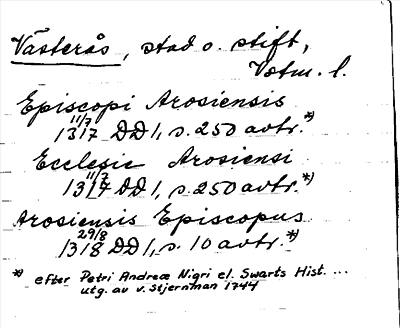 Västerås, stad o. stift,
Västm. l.
Episcopi Arosiensis
11/7
1317 DD 1, s. 250 avtr. *)
Ecclesie Arosiensi
11/7
1317 DD 1, s. 250 avtr. *)
Arosiensis Episcopus
29/8
1318 DD 1, s. 10 avtr. *)
*) efter Petri Andreæ Nigri el. Swarts Hist. ...
utg. av v. Stjernman 1744